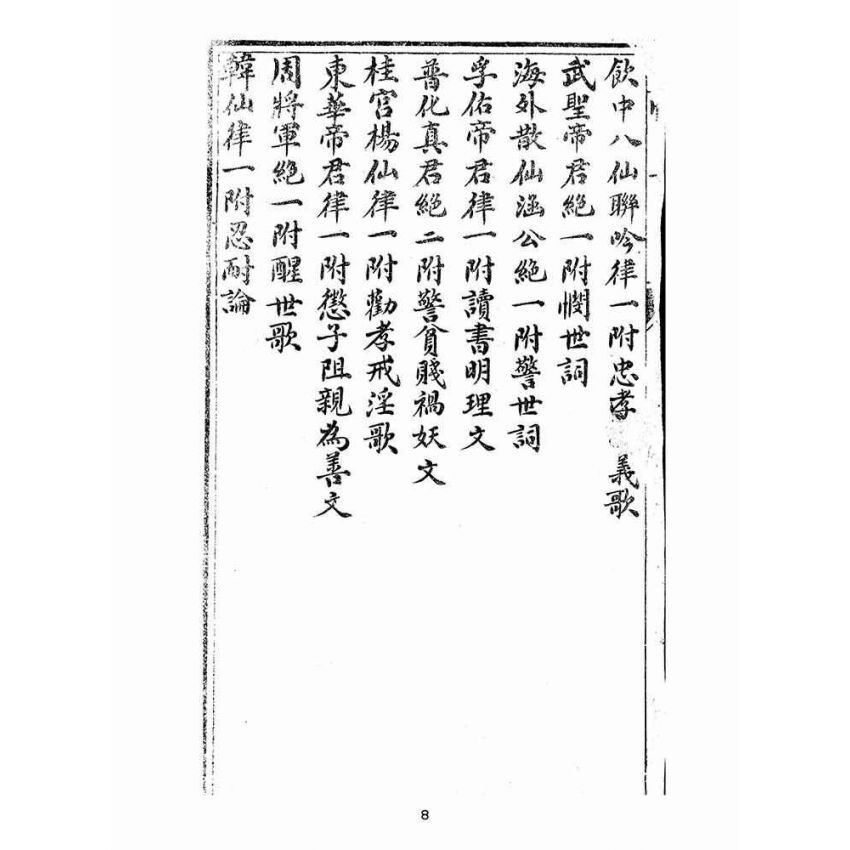 飲中八仙聯吟律一附忠孝 義歌
武聖帝君絕一附憫世詞
海外散仙涵公絕一附警世詞
孚佑帝君律一附讀書明理文
普化真君絕二附警貧賤禍妖文
桂宮楊仙律一附勸孝戒淫歌
東華帝君律一附懲子阻親為善文
周將軍絕一附醒世歌
韓仙律一附忍耐論
8